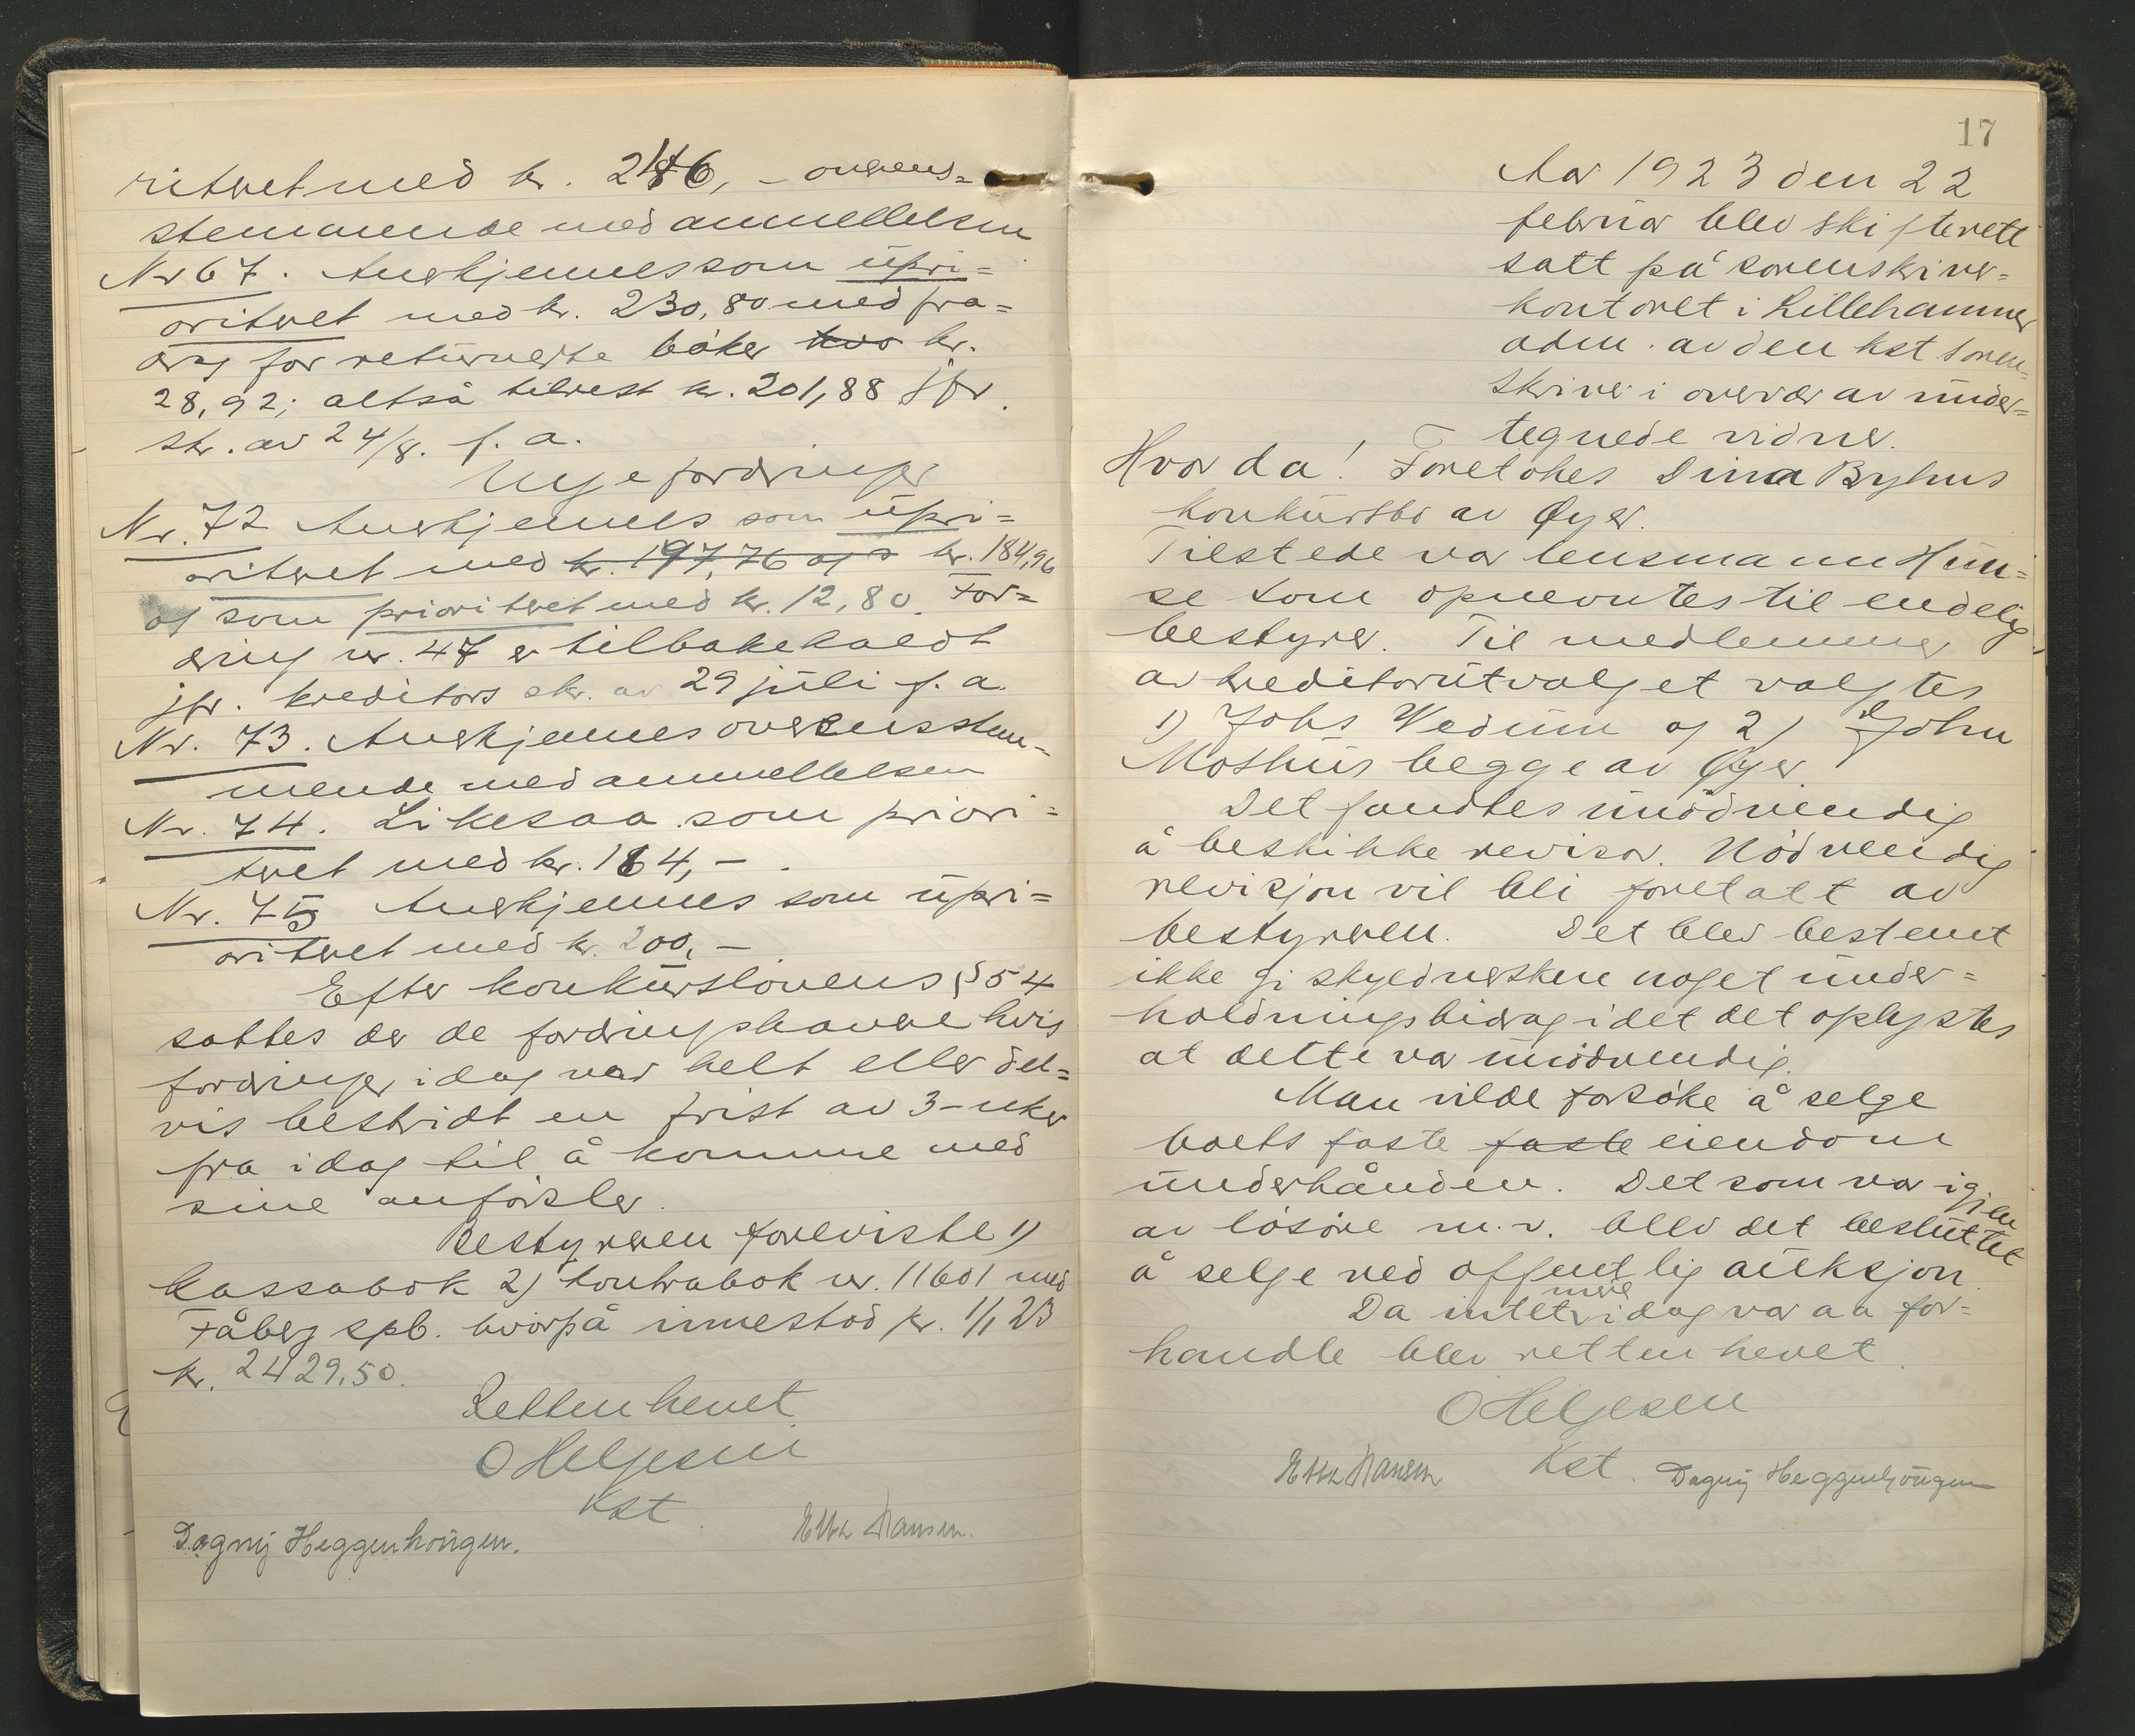 ritret med kr. 246, - overens=
stemmende med anmeldelsen
Nr 67. Anerkjennes som upri=
oritret med kr. 230,80 med fra=
drag for returnerte bøker hvor kr.
28,92; altså tilrest kr. 201,88 jfr.
skr. av 24/8. f. a.
Nye fordringer
Nr. 72 Anerkjennes som upri=
oritret med kr. 197,76 og s kr. 184,96
og som prioritret med kr. 12,80. For=
dring nr. 47 er tilbakekaldt
jfr. kreditors skr. av 29 juli f. a.
Nr. 73. Anerkjennes overensstem=
mende med anmeldelsen
Nr. 74. Likesaa som priori=
tret med kr. 164,-
Nr. 75 Anerkjennes som upri=
oritret med kr. 200,-
Efter konkurslovens § 54
sattes der de fordringshavere hvis
fordringer idag var helt eller del=
vis bestridt en frist av 3-uker
fra idag til å komme med
sine anførsler.
Bestyreren foreviste 1)
kassabok 2) kontrabok nr. 11601 med
Fåberg spb. hvorpå innestod pr. 1/1 23
kr. 2429,50.
Retten hevet.
O Helgesen
Kst.
Dagny Heggenhougen.
Etta Hansen.
17
Aar 1923 den 22
februar blev skifterett
satt på sorenskriver=
kontoret i Lillehammer
adm. av den kst soren=
skriver i overvær av under=
tegnede vidner.
Hvor da! Foretokes Dina Bryhns
konkursbo av Øyer.
Tilstede var lensmann Hun=
se som opnevntes til endelig
bestyrer. Til medlemmer
av kreditorutvalget valgtes
1) Johs Vedum og 2) John
Moshus begge av Øyer.
Det fandtes unødvendig
å beskikke revisor. Nødvendig
revisjon vil bli foretatt av
bestyreren. Det blev bestemt
ikke gi skyldnersken noget under=
holdningsbidrag idet det oplystes
at dette var unødvendig.
Man vilde forsøke å selge
boets faste faste eiendom
underhånden. Det som var igjen
av løsøre m.v. blev det besluttet
å selge ved offentlig auksjon.
Da intet mere idag var aa for=
handle blev retten hevet.
O Helgesen
Kst.
Etta Hansen
Dagny Heggenhougen